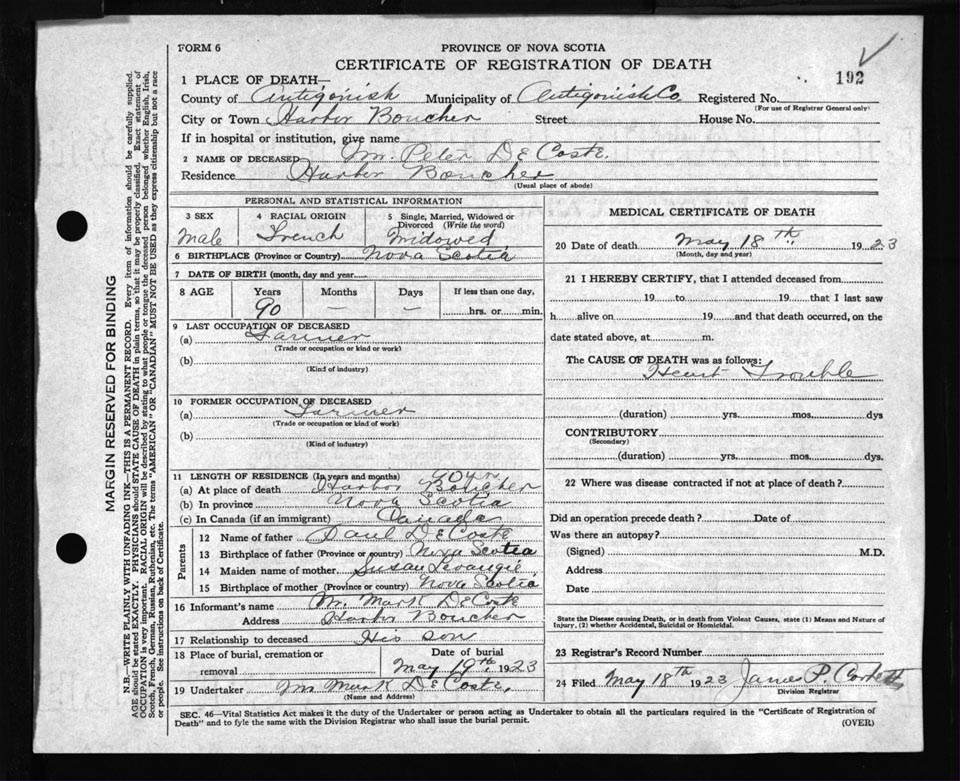 FORM 6
PROVINCE OF NOVA SCOTIA
CERTIFICATE OF REGISTRATION OF DEATH
192
1 PLACE OF DEATH—
County of Antigonish Municipality of Antigonish Co Registered No.
(For use of Registrar General only)
City or Town Harbor Boucher Street House No.
If in hospital or institution, give name
2 NAME OF DECEASED Mr. Peter DeCoste.
Residence Harbor Boucher
(Usual place of abode)
PERSONAL AND STATISTICAL INFORMATION
3 SEX
Male
4 RACIAL ORIGIN
French
5 Single, Married, Widowed or
Divorced (Write the word)
Widowed
6 BIRTHPLACE (Province or Country) Nova Scotia
7 DATE OF BIRTH (month, day and year
8 AGE Years Months Days If less than one day,
90 — — hrs. or min.
9 LAST OCCUPATION OF DECEASED
(a) Farmer
(Trade or occupation or kind or work)
(b)
(Kind of industry)
10 FORMER OCCUPATION OF DECEASED
(a) Farmer
(Trade or occupation or kind of work)
(b)
(Kind of industry)
11 LENGTH OF RESIDENCE (In years and months)
(a) At place of death Harbor Boucher
(b) In province Nova Scotia
(c) In Canada (if an immigrant) Canada
Parents
12 Name of father Paul DeCoste
13 Birthplace of father (Province or country) Nova Scotia
14 Maiden name of mother Susan Levangie
15 Birthplace of mother (Province or country) Nova Scotia
16 Informant's name Mr Mark DeCoste
Address Harbor Boucher
17 Relationship to deceased His son
18 Place of burial, cremation or
removal
Date of burial
May 19th 1923
19 Undertaker Mr Mark DeCoste,
(Name and Address)
MEDICAL CERTIFICATE OF DEATH
20 Date of death May 18th 1923
(Month, day and year)
21 I HEREBY CERTIFY, that I attended deceased from
19 to 19 that I last saw
h alive on 19 and that death occurred, on the
date stated above, at m.
The CAUSE OF DEATH was as follows:
Heart Trouble
(duration) yrs. mos. dys
CONTRIBUTORY
(Secondary)
(duration) yrs. mos. dys.
22 Where was disease contracted if not at place of death?
Did an operation precede death? Date of
Was there an autopsy?
(Signed) M.D.
Address
Date
State the Disease causing Death, or in death from Violent Causes, state (1) Means and Nature of
Injury, (2) whether Accidental, Suicidal or Homicidal.
23 Registrar's Record Number
24 Filed May 18th 1923 James P. Corbett
Division Registrar
SEC. 46—Vital Statistics Act makes it the duty of the Undertaker or person acting as Undertaker to obtain all the particulars required in the "Certificate of Registration of
Death" and to fyle the same with the Division Registrar who shall issue the burial permit.
(OVER)
MARGIN RESERVED FOR BINDING
N.B.—WRITE PLAINLY WITH UNFADING INK—THIS IS A PERMANENT RECORD. Every item of information should be carefully supplied.
AGE should be stated EXACTLY. PHYSICIANS should STATE CAUSE OF DEATH in plain terms, so that it may be properly classified. Exact statement of
OCCUPATION is very important. RACIAL ORIGIN will be described by stating to what people or tongue the deceased person belonged whether English, Irish,
Scotch, French, German, Russian, Ruthenian, etc. The terms "AMERICAN" OR "CANADIAN" MUST NOT BE USED as they express citizenship but not a race
or people. See instructions on back of Certificate.